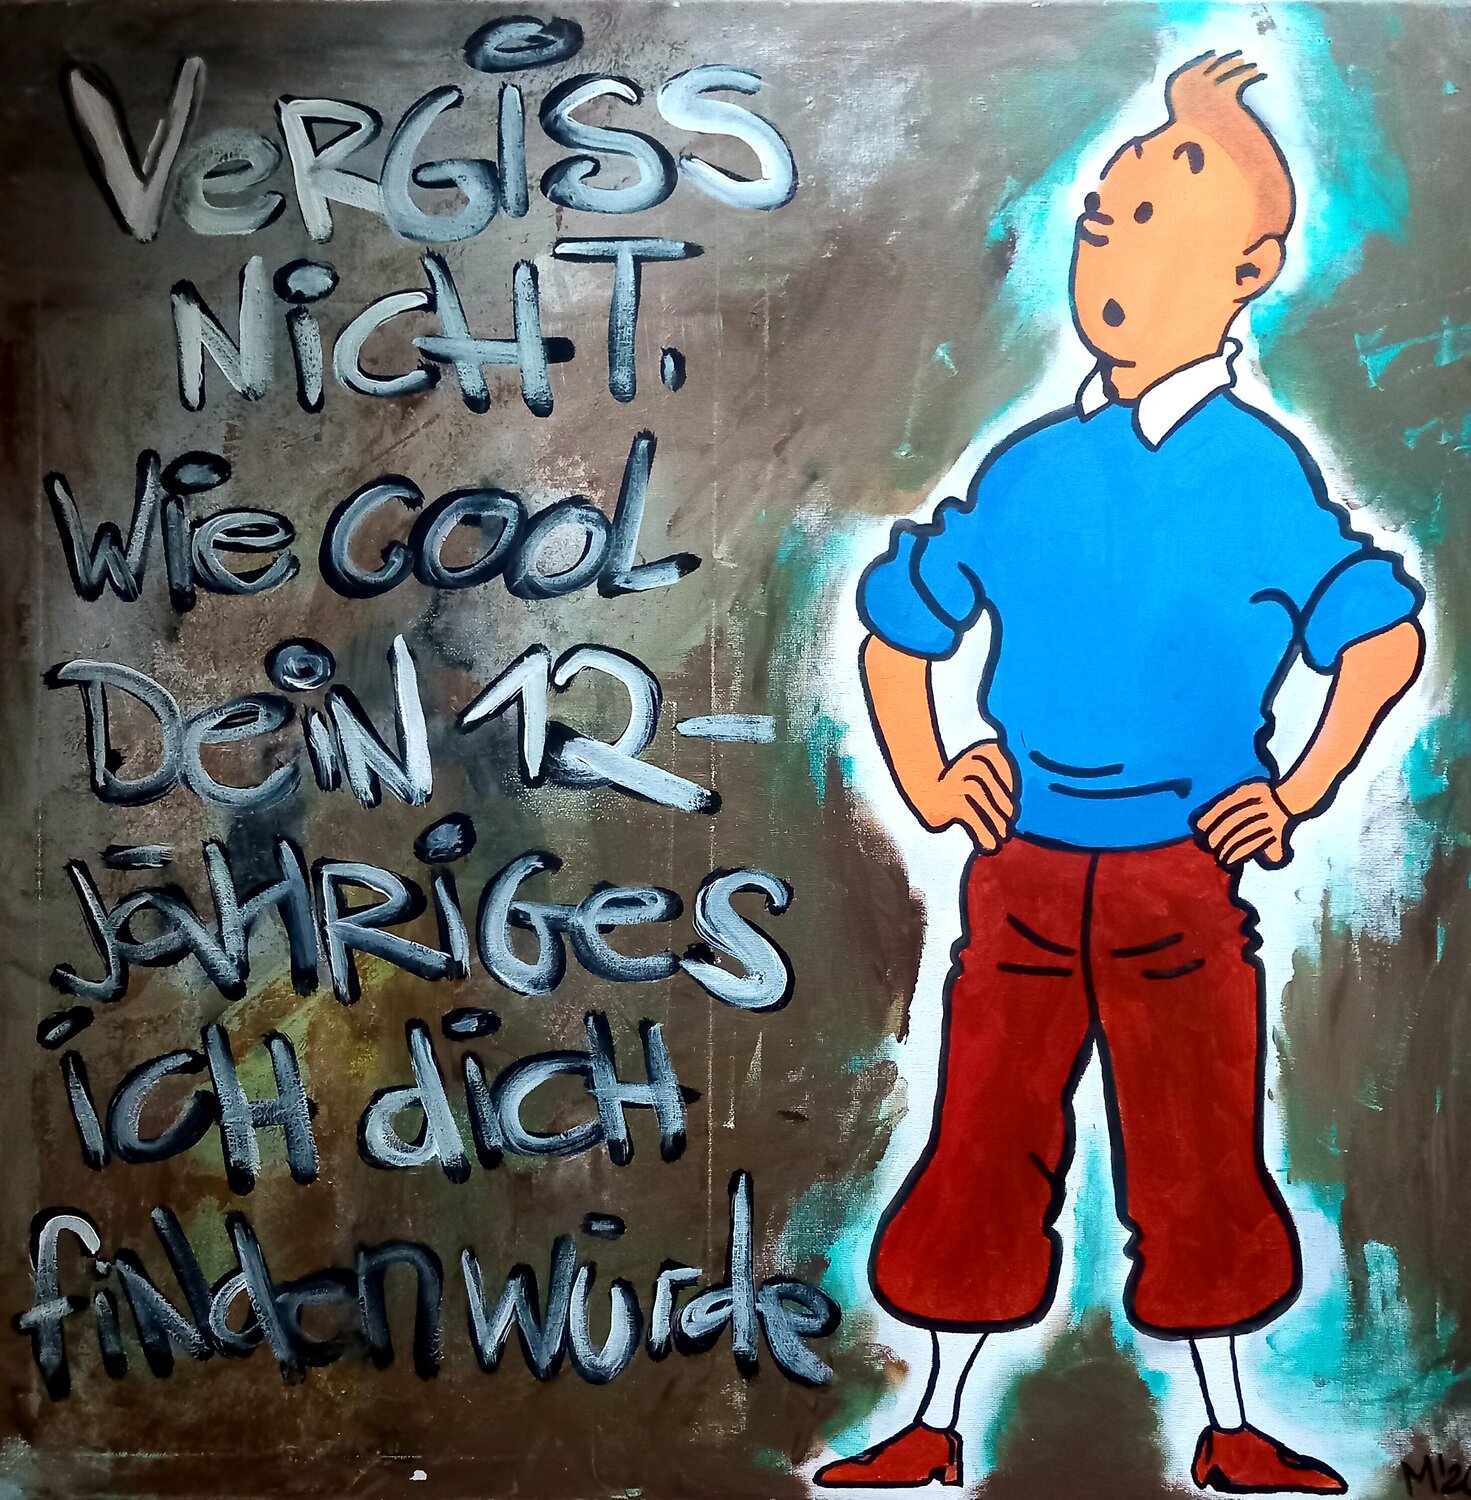 VeRGiSS
NiCHT,
Wie COOL
DeiN 12-
JäHRiGes
icH dicH
fiNden würde
M'20